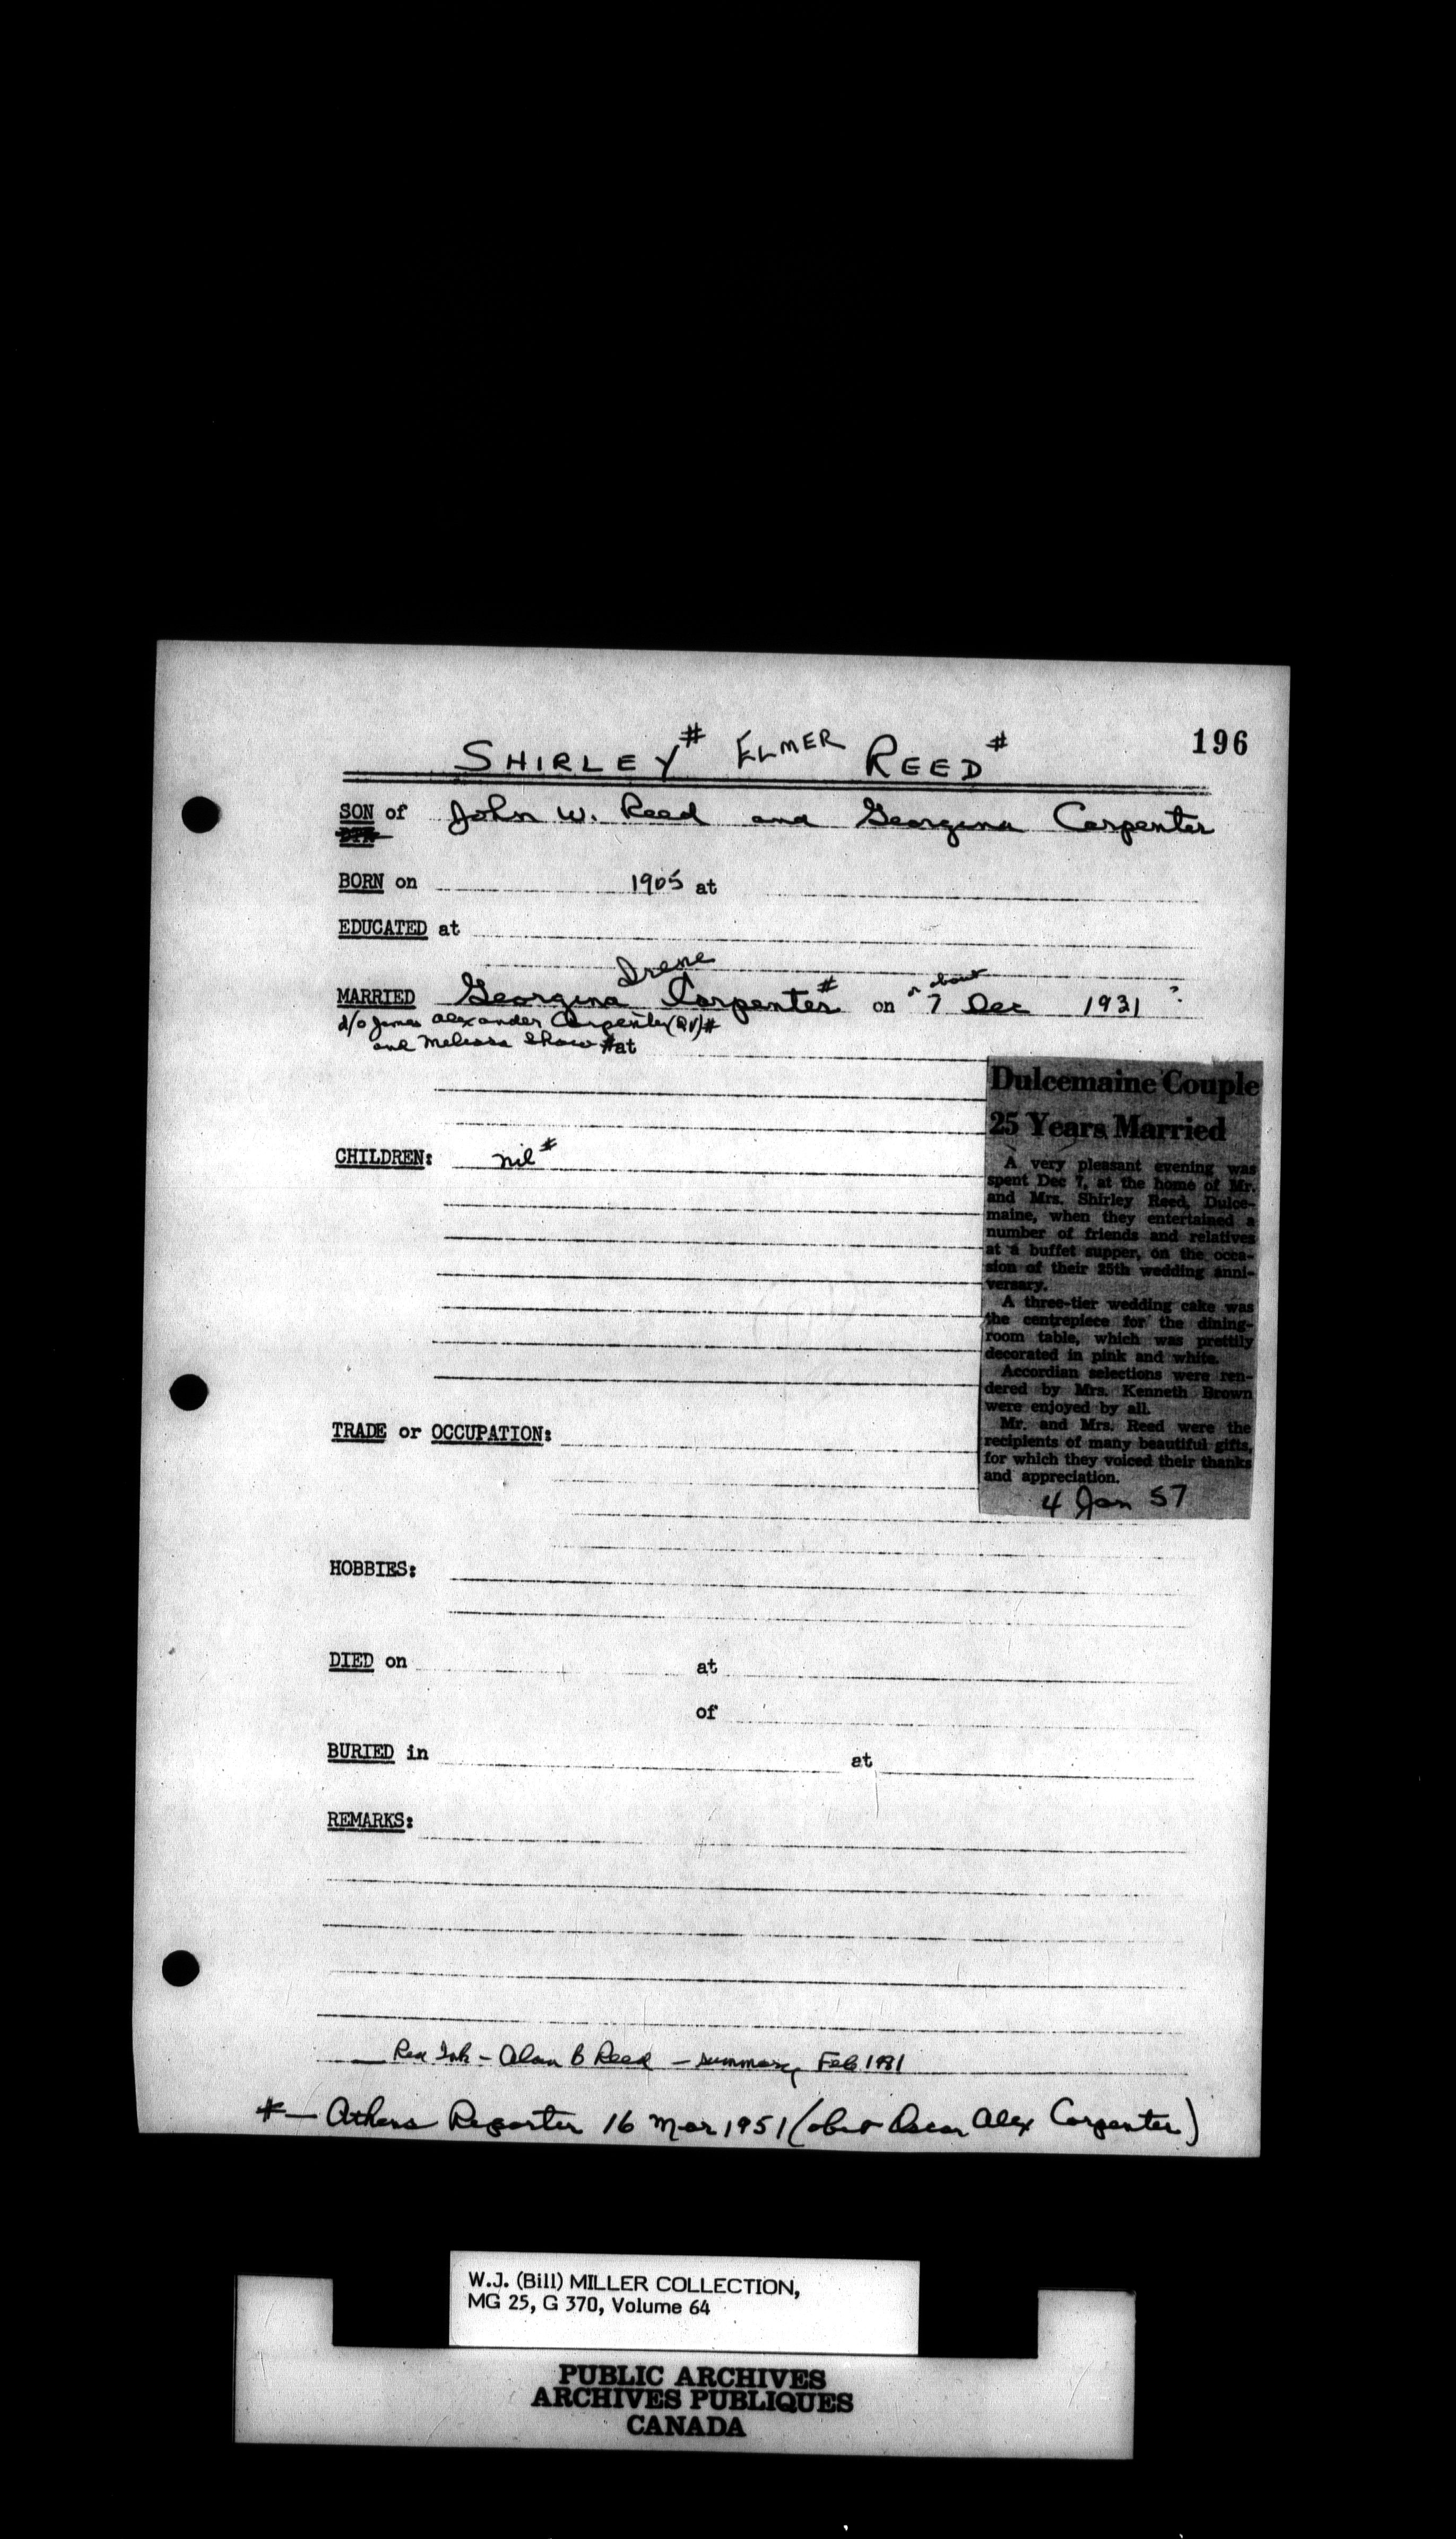 196
SHIRLEY# ELMER REED#
SON of John W. Reed and Georgina Carpenter
BORN on 1905 at
EDUCATED at
Irene
or about
MARRIED Georgina Carpenter# on 7 Dec 1931 ?
d/o James Alexander Carpenter #
and Melissa Shaw # at
CHILDREN: nil#
Dulcemaine Couple
25 Years Married
A very pleasant evening was
spent Dec 7, at the home of Mr.
and Mrs. Shirley Reed, Dulce-
maine, when they entertained a
number of friends and relatives
at a buffet supper, on the occa-
sion of their 25th wedding anni-
versary.
A three-tier wedding cake was
the centrepiece for the dining-
room table, which was prettily
decorated in pink and white.
Accordian selections were ren-
dered by Mrs. Kenneth Brown
were enjoyed by all.
Mr. and Mrs. Reed were the
recipients of many beautiful gifts,
for which they voiced their thanks
and appreciation.
4 Jan 57
TRADE or OCCUPATION:
HOBBIES:
DIED on at
of
BURIED in at
REMARKS:
Red Ink - Alan B Reed - summary Feb 1981
# - Athens Reporter 16 Mar 1951 (obit Oscar Alex Carpenter)
W.J. (Bill) MILLER COLLECTION,
MG 25, G 370, Volume 64
PUBLIC ARCHIVES
ARCHIVES PUBLIQUES
CANADA